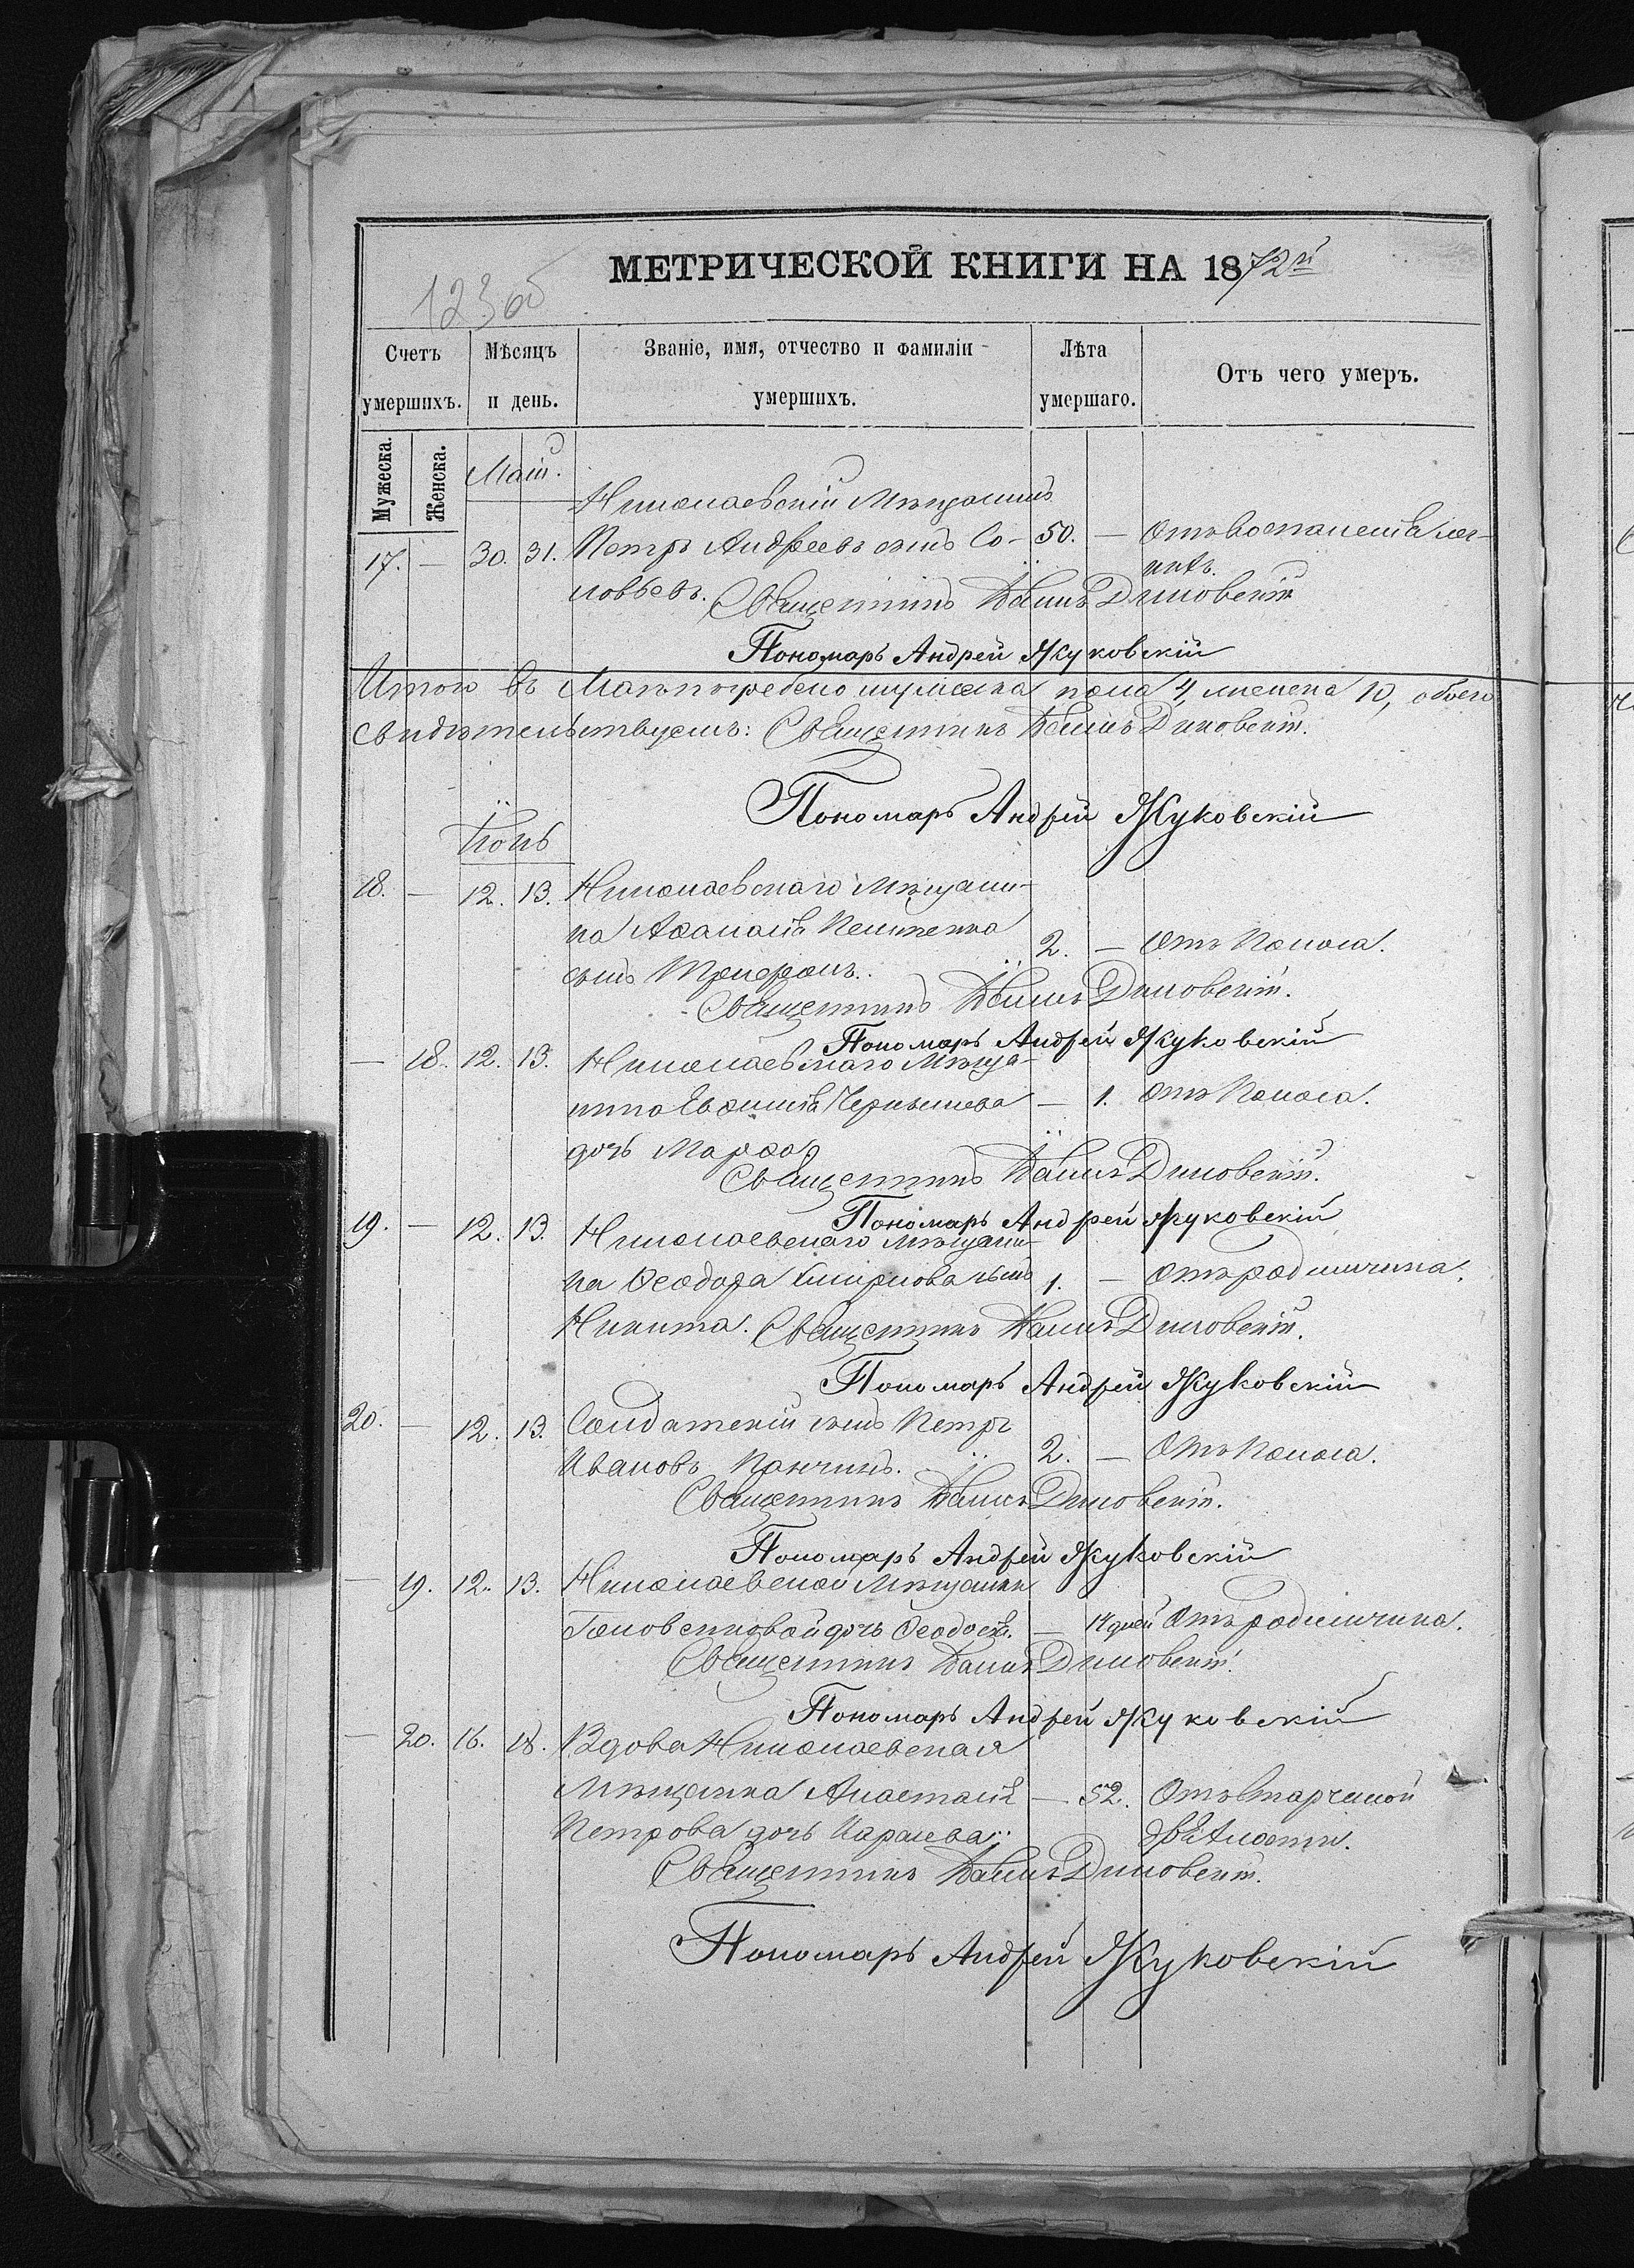 МЕТРИЧЕСКОЙ КНИГИ НА 1872й
123об
Счетъ умершихъ.
Мѣсяцъ и день.
Званіе, имя, отчество и фамиліи умершихъ.
Лѣта умершаго.
Отъ чего умеръ.
Мужеска.
Женска.
Маій.
Николаевскій Мѣщанинъ
17. — 30. 31. Петръ Андреевъ сынъ Со- 50. — Отъ воспаленія лег-
ловьевъ. кихъ.
Священникъ Діковскій
Пономарь Андрей Жуковскій
Итого въ Маѣ погребено мужеска пола 4, женска 10, обоего
свидѣтельствуемъ: Священникъ Діковскій.
Пономарь Андрей Жуковскій
Іюнь
18. — 12. 13. Николаевскаго Мѣщани-
на Аѳанасія 2. — Отъ Поноса.
сынъ Трифонъ.
Священникъ Діковскій.
Пономарь Андрей Жуковскій
— 18. 12. 13. Николаевскаго Мѣща-
нина Евѳимія Чернышева — 1. Отъ Поноса.
дочь Марѳа
Священникъ Діковскій.
Пономарь Андрей Жуковскій
19. — 12. 13. Николаевскаго Мѣщани-
на Ѳеодора Смирнова сынъ 1. — Отъ родимчика.
Никита. Священникъ Діковскій.
Пономарь Андрей Жуковскій
20. — 12. 13. Солдатскій сынъ Петръ
Ивановъ Панчинъ. 2. — Отъ Поноса.
Священникъ Діковскій.
Пономарь Андрей Жуковскій
— 19. 12. 13. Николаевской Мѣщанки
дочь Ѳеодосія. — 14 дней Отъ родимчика.
Священникъ Діковскій.
Пономарь Андрей Жуковскій
— 20. 16. 18. Вдова Николаевская
Мѣщанка Анастасія — 52. Отъ старческой
Петрова дочь дряхлости.
Священникъ Діковскій.
Пономарь Андрей Жуковскій